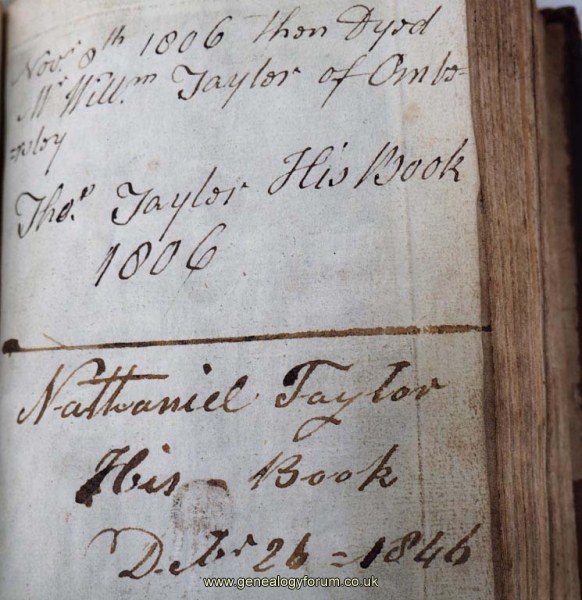 Novr 8th 1806 then Dyed
Mr Willm Taylor of Ombe-
=rsley
Thos Taylor His Book
1806
Nathaniel Taylor
His - Book
Debr 26 = 1846
www.genealogyforum.co.uk